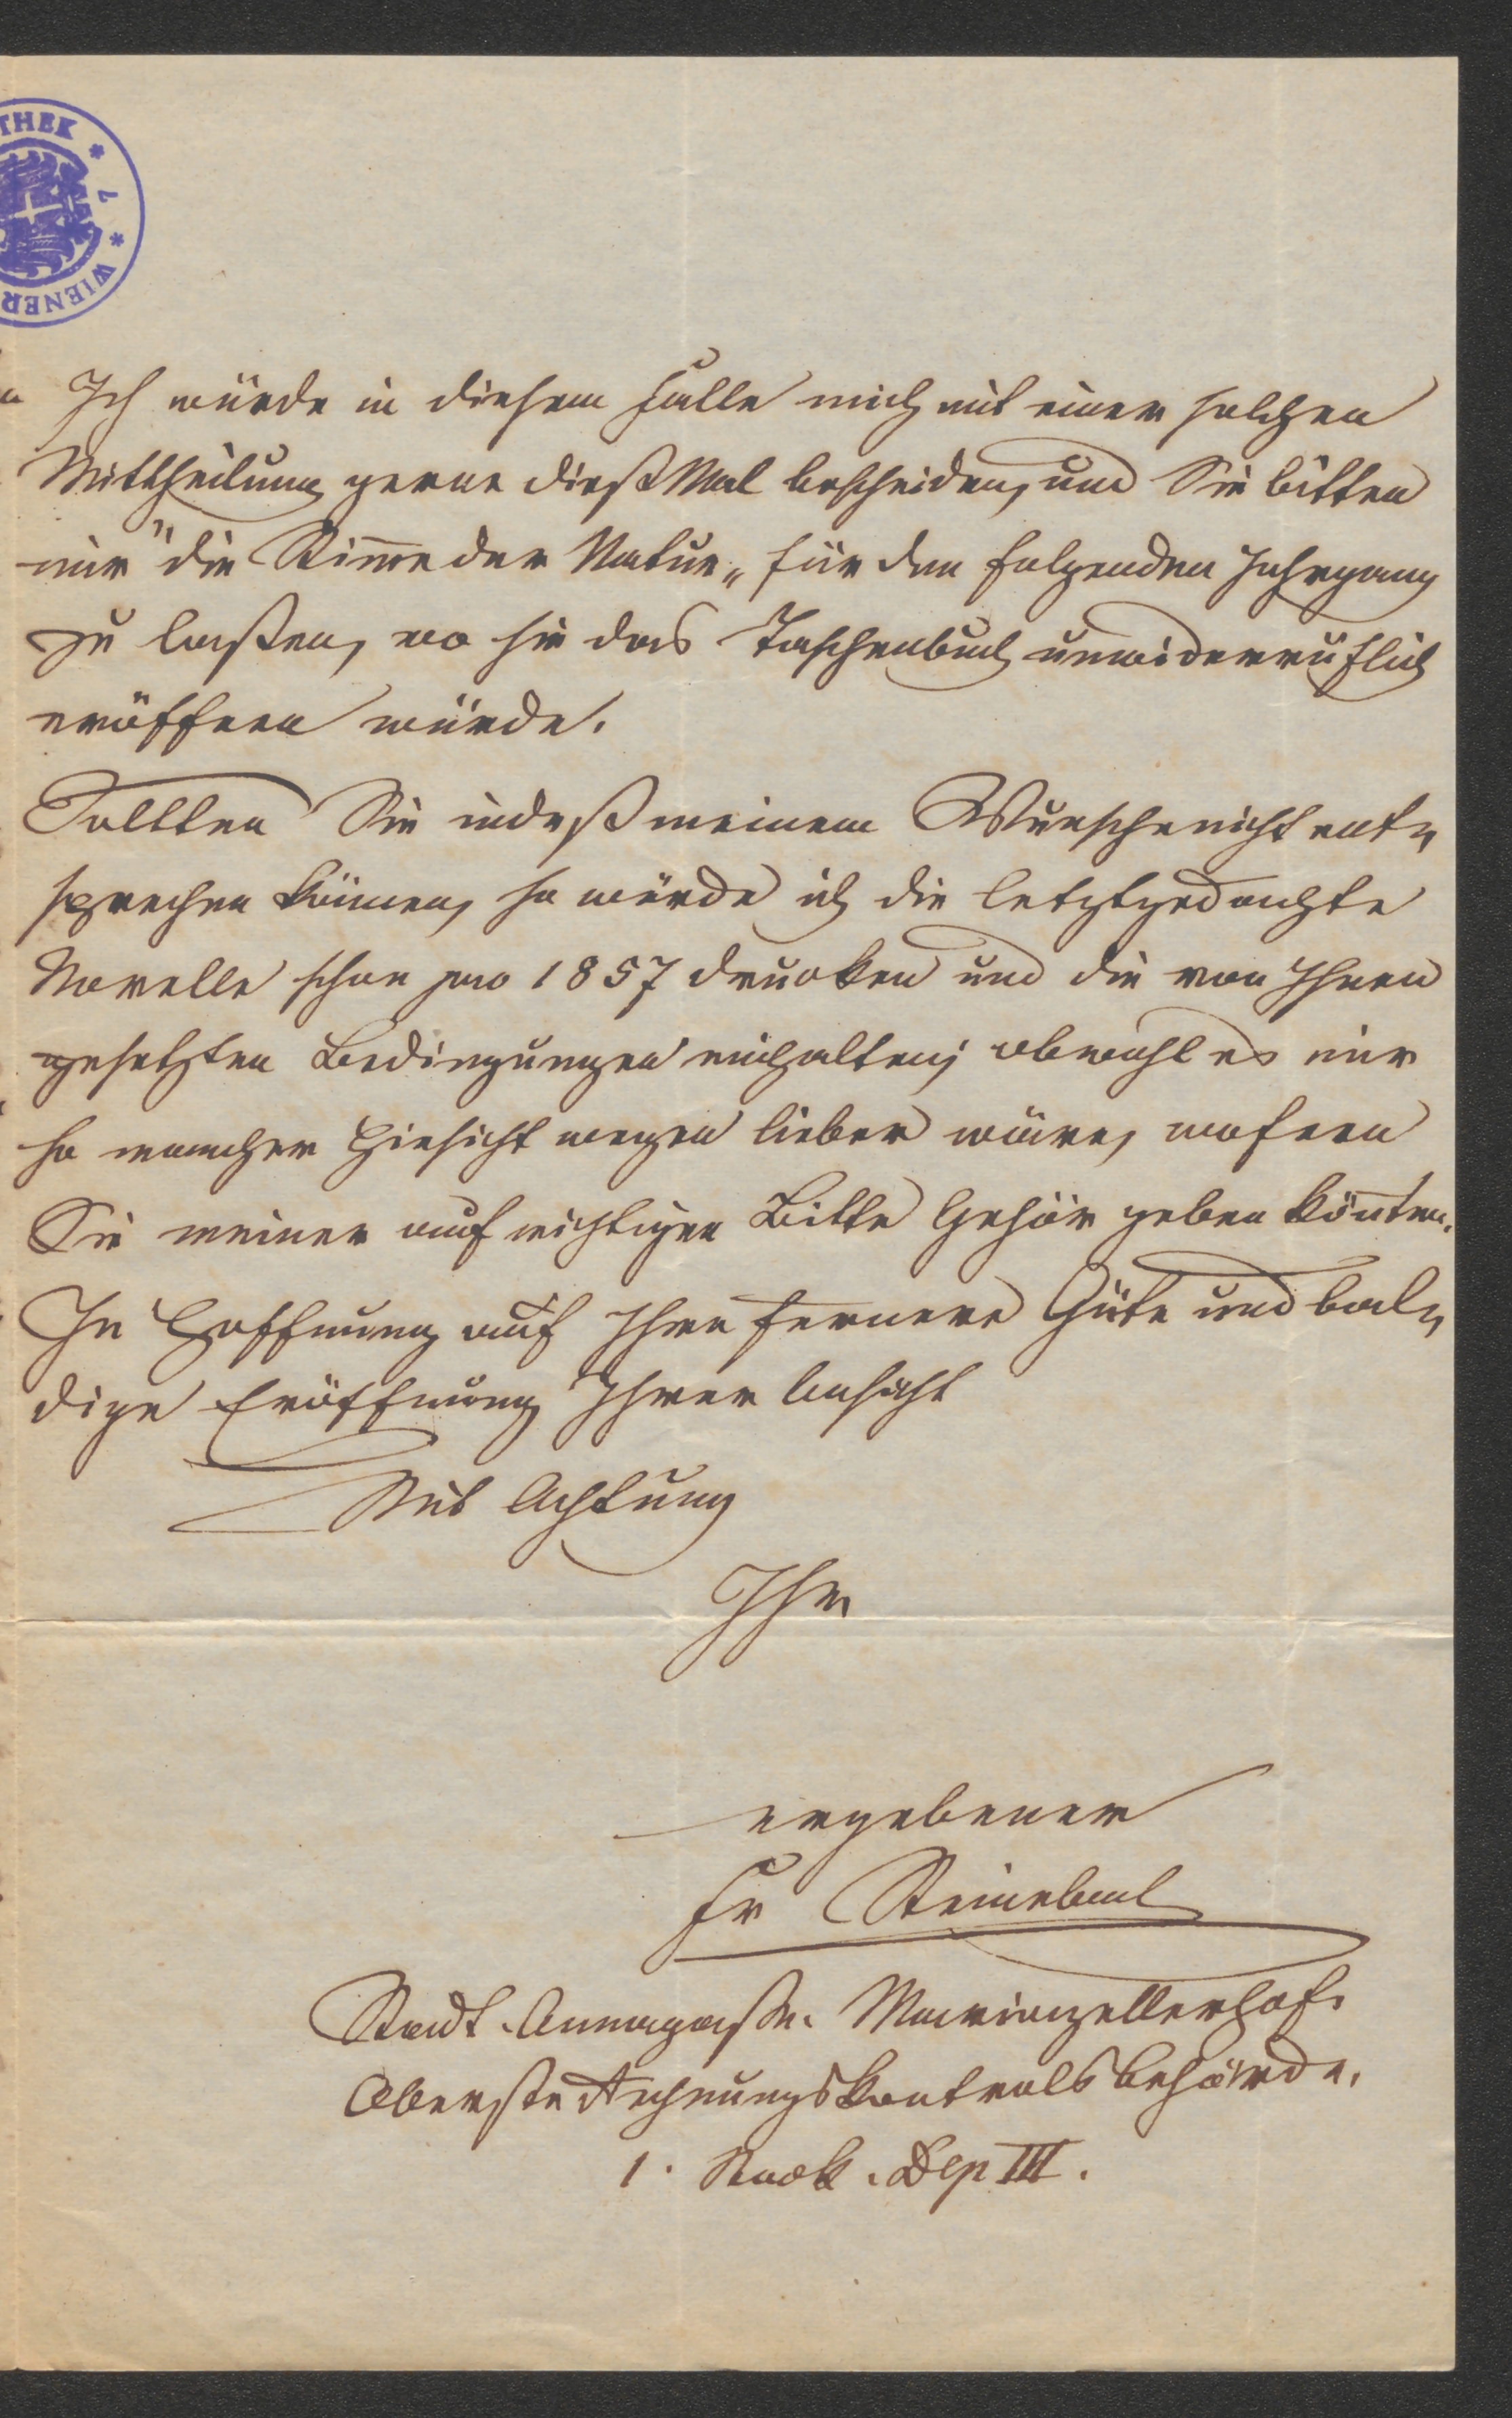 THEK * 7 * WIENER
Ich würde in diesem Falle mich mit einer solchen
Mittheilung gerne dieß Mal bescheiden, und Sie bitten
mir "die Stim̅e der Natur" für den folgenden Jahrgang
zu laßen, wo sie das Taschenbuch unwiderruflich
eröffnen würde.
Sollten Sie indeß meinem Wunsche nicht ent„
sprechen können, so würde ich die letztgedachte
Novelle schon pro 1857 drucken und die von Ihnen
gesetzten Bedingungen einhalten; obwohl es mir
so mancher Hinsicht wegen lieber wäre, wofern
Sie meiner aufrichtigen Bitte Gehör geben kön̅ten.
In Hoffnung auf Ihre fernere Güte und bal„
dige Eröffnung Ihrer Ansicht
Mit Achtung
Ihr
ergebener
Fr Steinebach
Stadt. Annagasse. Mariazellerhof.
Oberste Rechnungskontrolsbehörde.
1. Stock. Dep III.